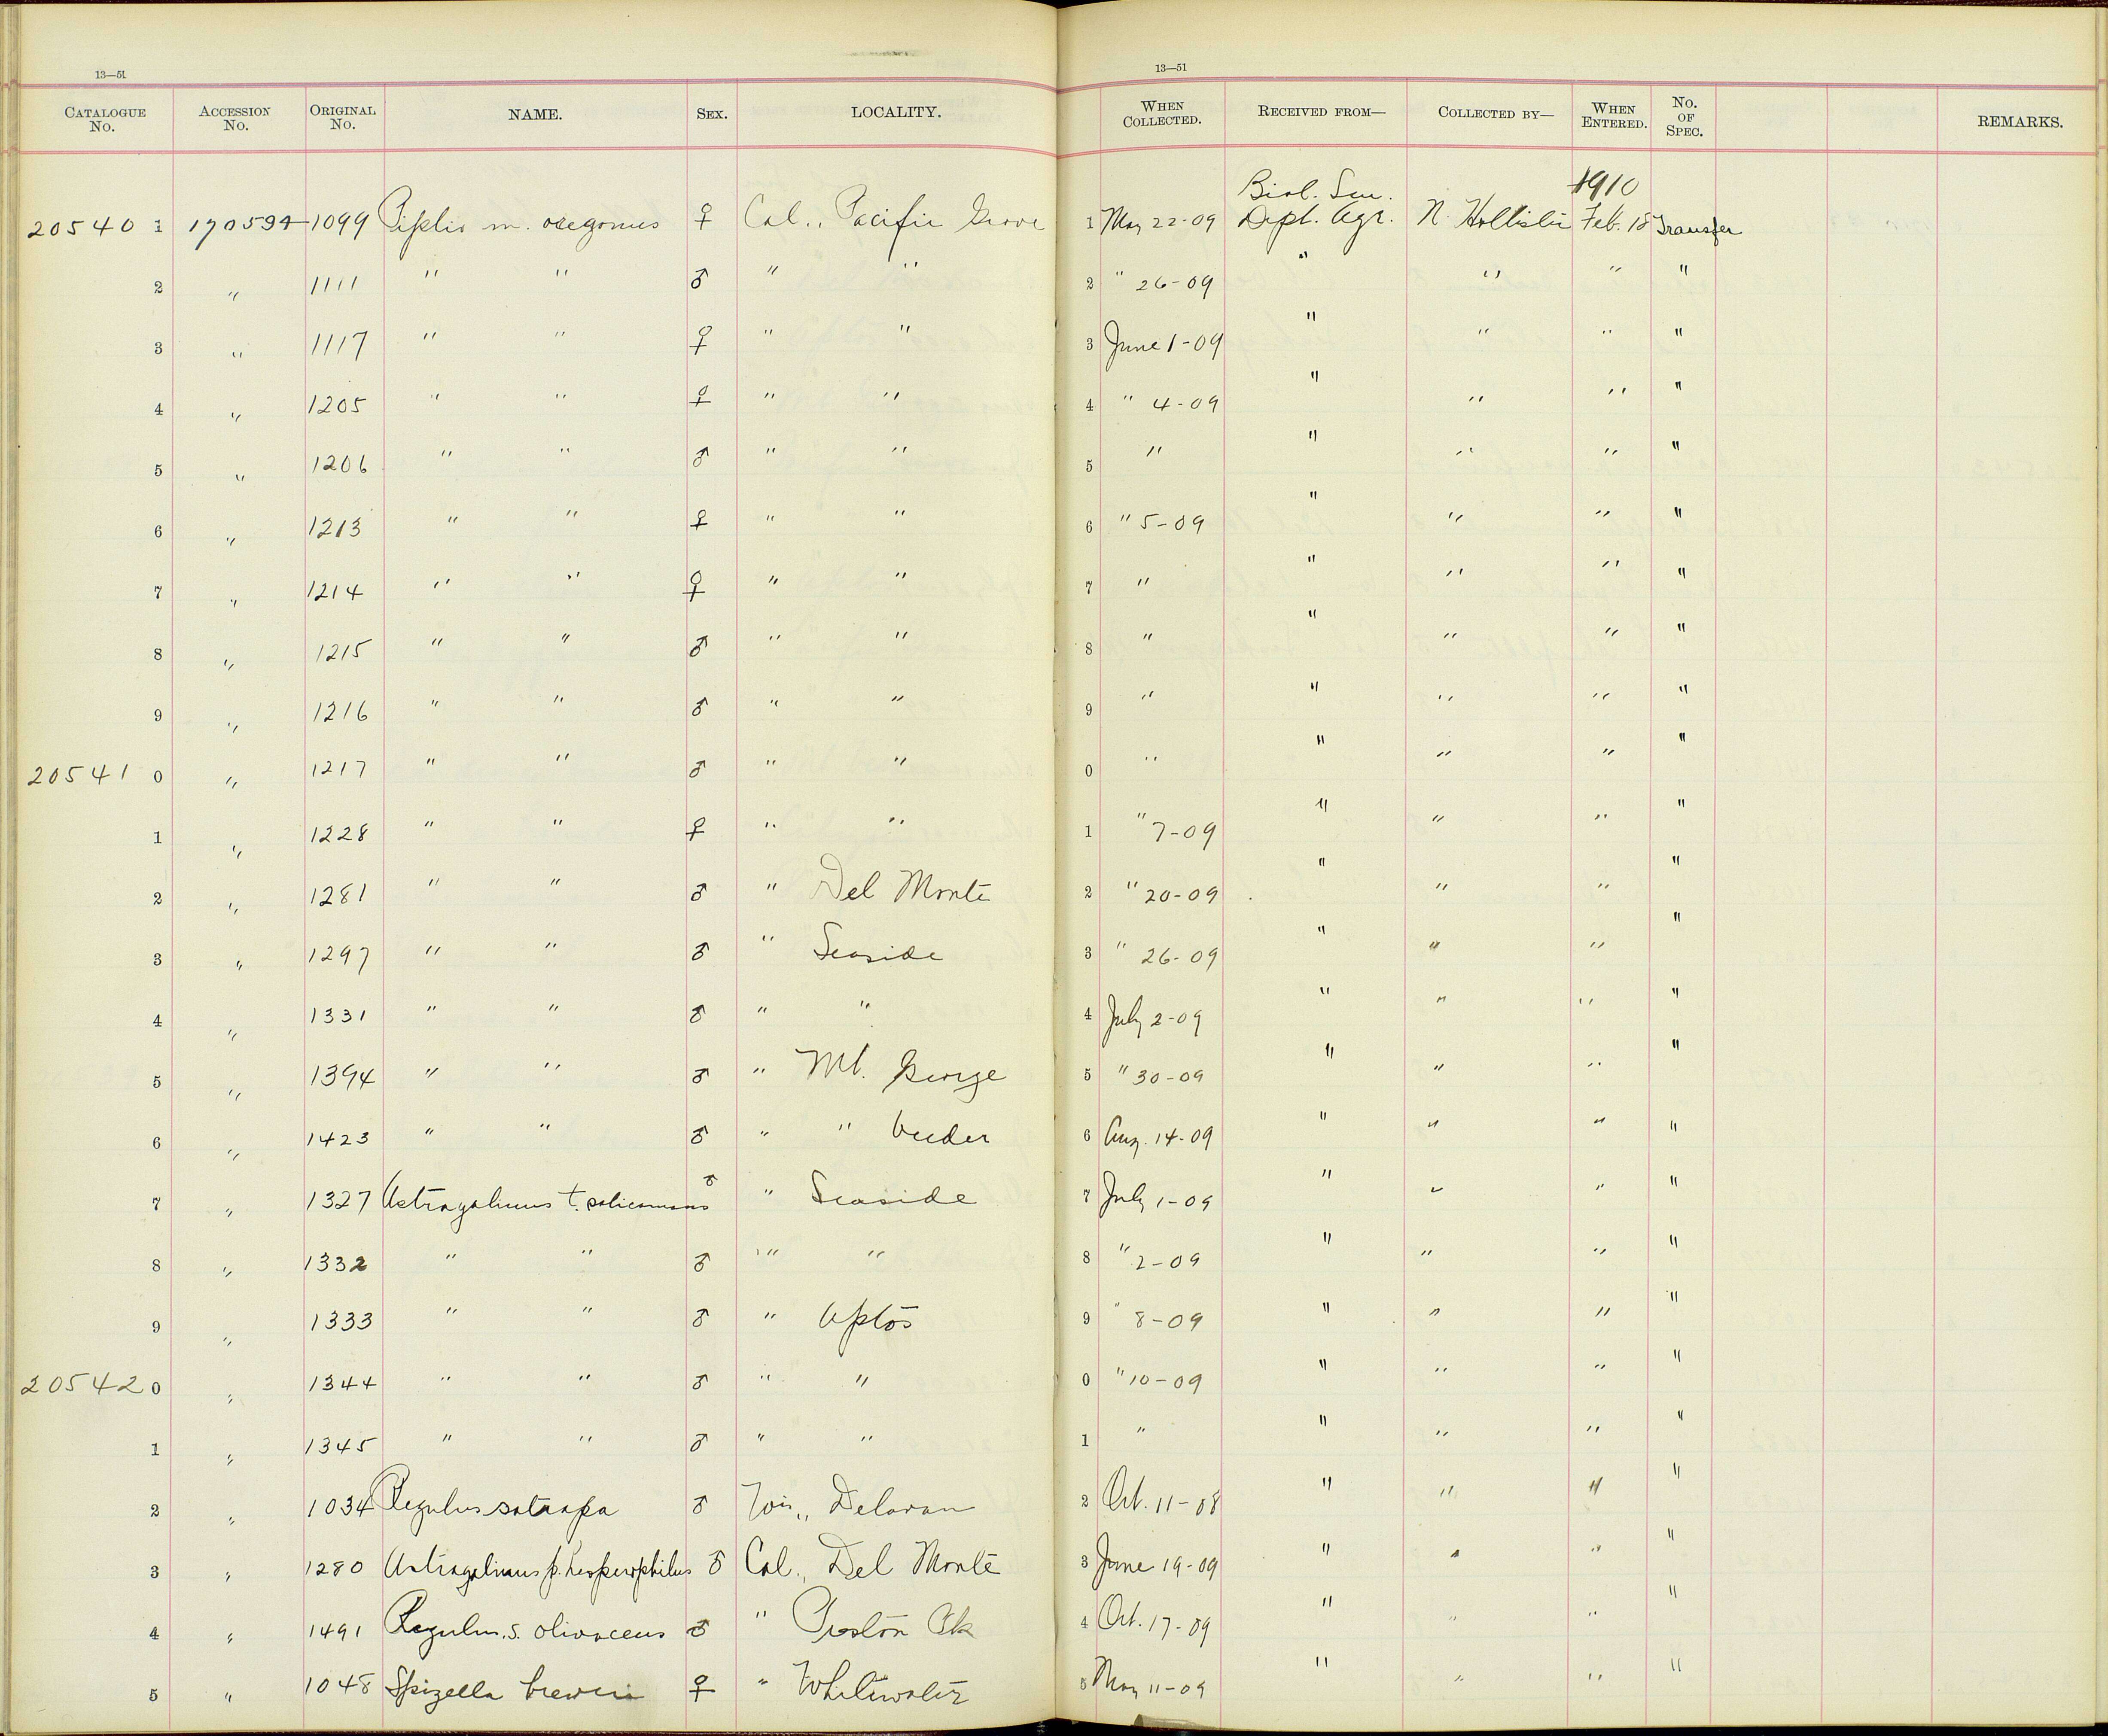 13—51
13—51
CATALOGUE No. ACCESSION No. ORIGINAL No. NAME. SEX. LOCALITY. WHEN COLLECTED. RECEIVED FROM— COLLECTED BY— WHEN ENTERED. No. OF SPEC. REMARKS.
20540 1 170594 1099 Pipilo m. oregonus ♀ Cal., Pacific Grove 1 May 22-09 Biol. Sur. Dept. Agr. N. Hollister 1910 Feb. 18 Transfer
2 " 1111 " " ♂ " " 2 " 26-09 " " " "
3 " 1117 " " ♀ " " 3 June 1-09 " " " "
4 " 1205 " " ♀ " " 4 " 4-09 " " " "
5 " 1206 " " ♂ " " 5 " " " " "
6 " 1213 " " ♀ " " 6 " 5-09 " " " "
7 " 1214 " " ♀ " " 7 " " " " "
8 " 1215 " " ♂ " " 8 " " " " "
9 " 1216 " " ♂ " " 9 " " " " "
20541 0 " 1217 " " ♂ " " 0 " " " " "
1 " 1228 " " ♀ " " 1 " 7-09 " " " "
2 " 1281 " " ♂ " Del Monte 2 " 20-09 " " " "
3 " 1297 " " ♂ " Seaside 3 " 26-09 " " " "
4 " 1331 " " ♂ " " 4 July 2-09 " " " "
5 " 1394 " " ♂ " Mt. George 5 " 30-09 " " " "
6 " 1423 " " ♂ " " Veeder 6 Aug. 14-09 " " " "
7 " 1327 Astragalinus t. salicamans ♂ " Seaside 7 July 1-09 " " " "
8 " 1332 " " ♂ " " 8 " 2-09 " " " "
9 " 1333 " " ♂ " Aptos 9 " 8-09 " " " "
20542 0 " 1344 " " ♂ " " 0 " 10-09 " " " "
1 " 1345 " " ♂ " " 1 " " " " "
2 " 1034 Regulus satrapa ♂ Wis., Delavan 2 Oct. 11-08 " " " "
3 " 1280 Astragalinus p. hesperophilus ♂ Cal., Del Monte 3 June 19-09 " " " "
4 " 1491 Regulus. s. olivaceus ♂ " Preston Pk 4 Oct. 17-09 " " " "
5 " 1048 Spizella breweri ♀ " Whitewater 5 May 11-09 " " " "